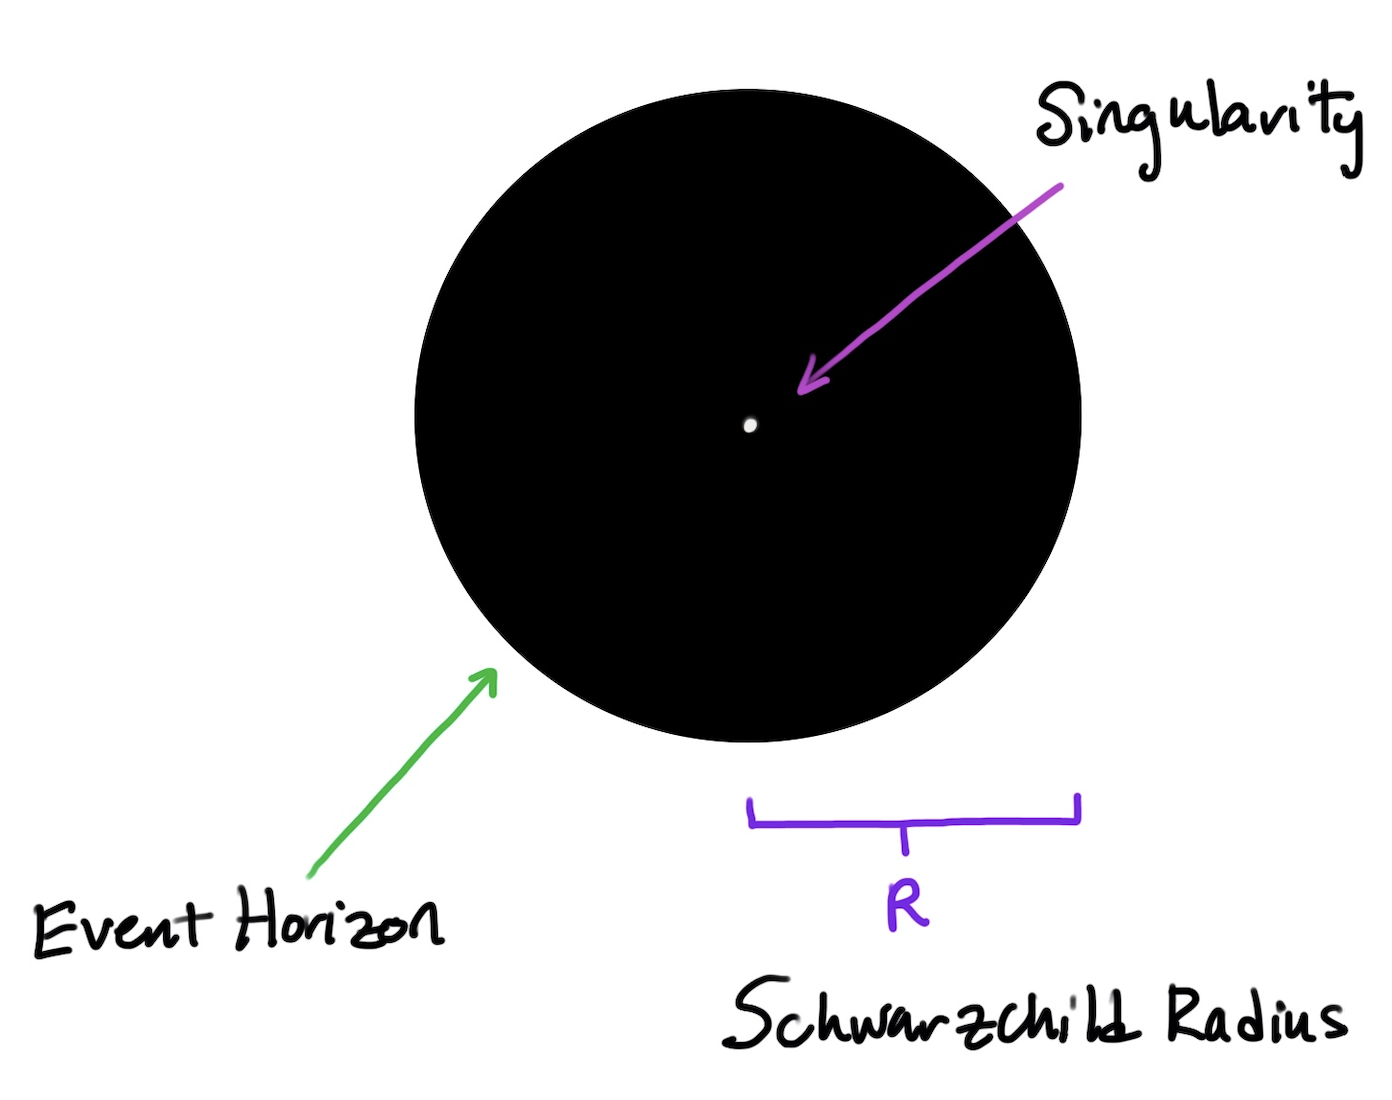 Singularity
R
Event Horizon
Schwarzchild Radius